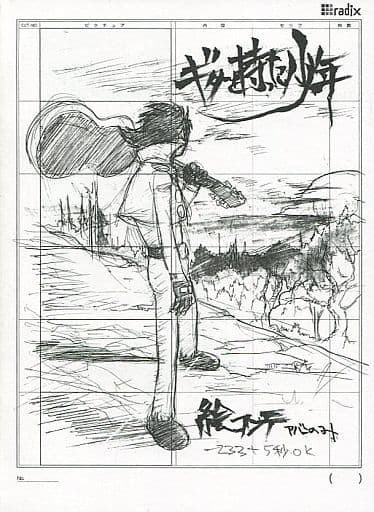 radix
CUT NO ピクチュア 内容 セリフ 秒数
ギターを持った少年
絵コンテ アバンのみ
-233+5秒.OK
No.
( )